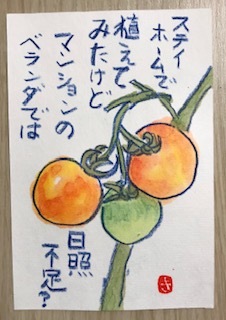 ステイ
ホームで
植えて
みたけど
マンションの
ベランダでは
日照
不足?